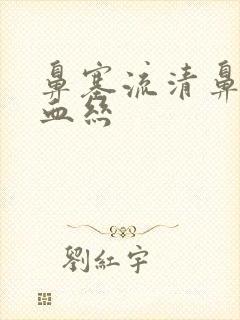 鼻塞流清鼻
血絲
劉紅宇